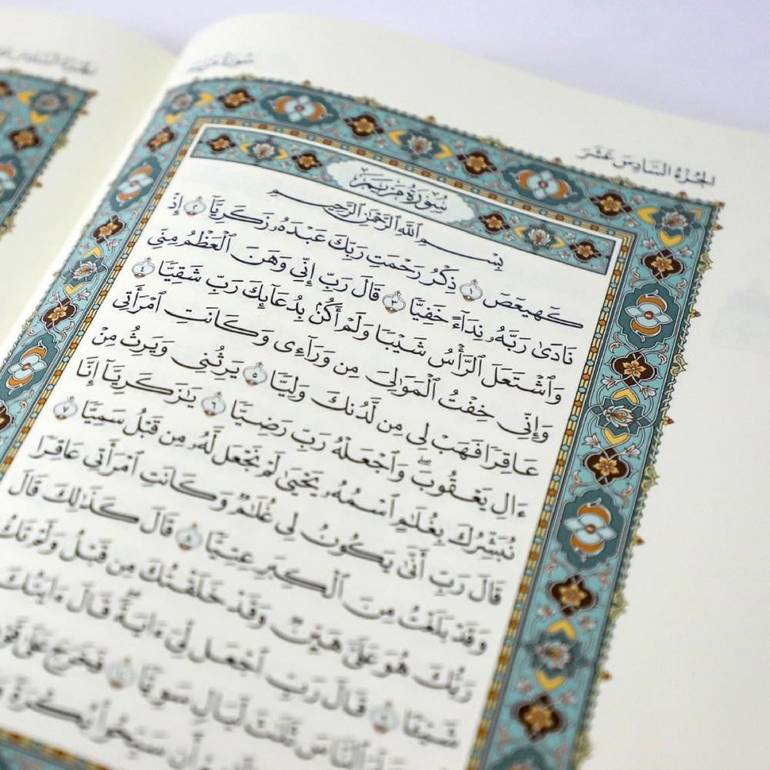 سورة مريم
الجزء السادس عشر
سورة مريم
بسم الله الرحمن الرحيم
كٓهيعٓصٓ ١ ذِكْرُ رَحْمَتِ رَبِّكَ عَبْدَهُۥ زَكَرِيَّآ ٢ إِذْ
نَادَىٰ رَبَّهُۥ نِدَآءً خَفِيًّا ٣ قَالَ رَبِّ إِنِّي وَهَنَ ٱلْعَظْمُ مِنِّي
وَٱشْتَعَلَ ٱلرَّأْسُ شَيْبًا وَلَمْ أَكُنۢ بِدُعَآئِكَ رَبِّ شَقِيًّا ٤
وَإِنِّي خِفْتُ ٱلْمَوَٰلِيَ مِن وَرَآءِي وَكَانَتِ ٱمْرَأَتِي
عَاقِرًا فَهَبْ لِي مِن لَّدُنكَ وَلِيًّا ٥ يَرِثُنِي وَيَرِثُ مِنْ
ءَالِ يَعْقُوبَۖ وَٱجْعَلْهُ رَبِّ رَضِيًّا ٦ يَٰزَكَرِيَّآ إِنَّا
نُبَشِّرُكَ بِغُلَٰمٍ ٱسْمُهُۥ يَحْيَىٰ لَمْ نَجْعَل لَّهُۥ مِن قَبْلُ سَمِيًّا ٧
قَالَ رَبِّ أَنَّىٰ يَكُونُ لِي غُلَٰمٌ وَكَانَتِ ٱمْرَأَتِي عَاقِرًا
وَقَدْ بَلَغْتُ مِنَ ٱلْكِبَرِ عِتِيًّا ٨ قَالَ كَذَٰلِكَ قَالَ
رَبُّكَ هُوَ عَلَيَّ هَيِّنٌ وَقَدْ خَلَقْتُكَ مِن قَبْلُ وَلَمْ تَكُ
شَيْـًٔا ٩ قَالَ رَبِّ ٱجْعَل لِّيٓ ءَايَةًۖ قَالَ ءَايَتُكَ
ٱلنَّاسَ ثَلَٰثَ لَيَالٍ سَوِيًّا ١٠ فَخَرَجَ عَلَىٰ
أَن سَبِّحُوا۟ بُكْرَةً